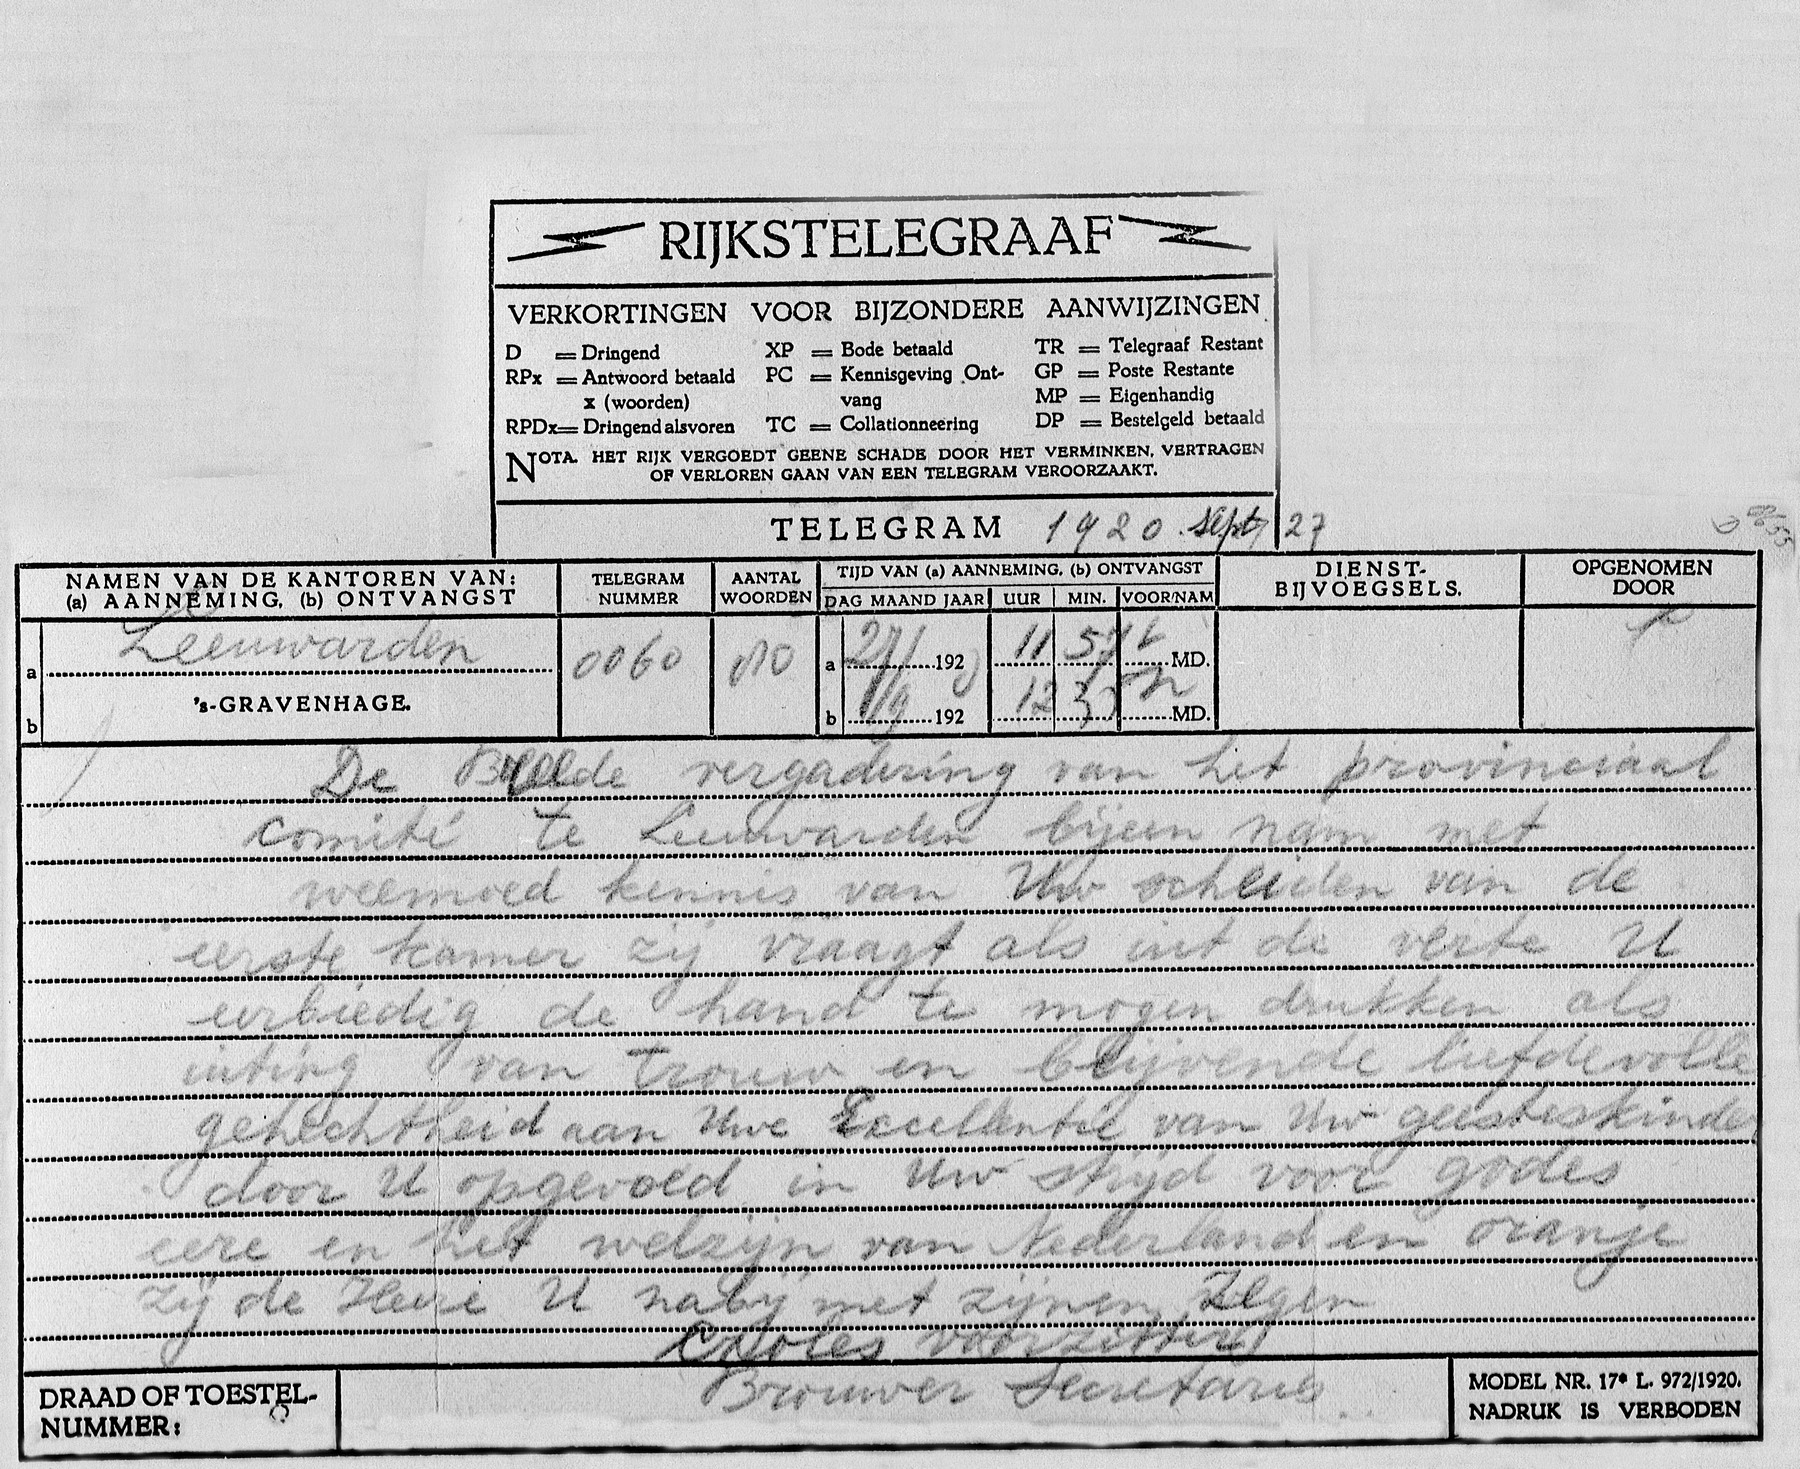 RIJKSTELEGRAAF
VERKORTINGEN VOOR BIJZONDERE AANWIJZINGEN
D = Dringend XP = Bode betaald TR = Telegraaf Restant
RPx = Antwoord betaald PC = Kennisgeving Ont- GP = Poste Restante
x (woorden) vang MP = Eigenhandig
RPDx = Dringend alsvoren TC = Collationneering DP = Bestelgeld betaald
NOTA. HET RIJK VERGOEDT GEENE SCHADE DOOR HET VERMINKEN, VERTRAGEN
OF VERLOREN GAAN VAN EEN TELEGRAM VEROORZAAKT.
TELEGRAM 1920 Sept 27
NAMEN VAN DE KANTOREN VAN: TELEGRAM AANTAL TIJD VAN (a) AANNEMING, (b) ONTVANGST DIENST- OPGENOMEN
(a) AANNEMING, (b) ONTVANGST NUMMER WOORDEN DAG MAAND JAAR UUR MIN. VOOR/NAM BIJVOEGSELS. DOOR
a Leeuwarden 0060 a 192 11 57 MD.
b 's-GRAVENHAGE. b 192 12 MD.
De vergadering van het provinciaal
comité te Leeuwarden bijeen nam met
weemoed kennis van Uw scheiden van de
eerste kamer zij vraagt als uit de verte U
eerbiedig de hand te mogen drukken als
uiting van trouw en blijvende liefdevolle
gehechtheid aan Uwe Excellentie van Uw geesteskinder
door U opgevoed in Uw strijd voor godes
eere en het welzijn van Nederland en oranje
zij de Heere U nabij met zijnen zegen
Croles voorzitter
Brouwer Secretaris
DRAAD OF TOESTEL-
NUMMER:
MODEL NR. 17* L. 972/1920.
NADRUK IS VERBODEN